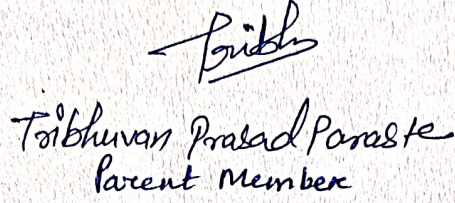 Tribhuvan Prasad Paraste
Parent Member